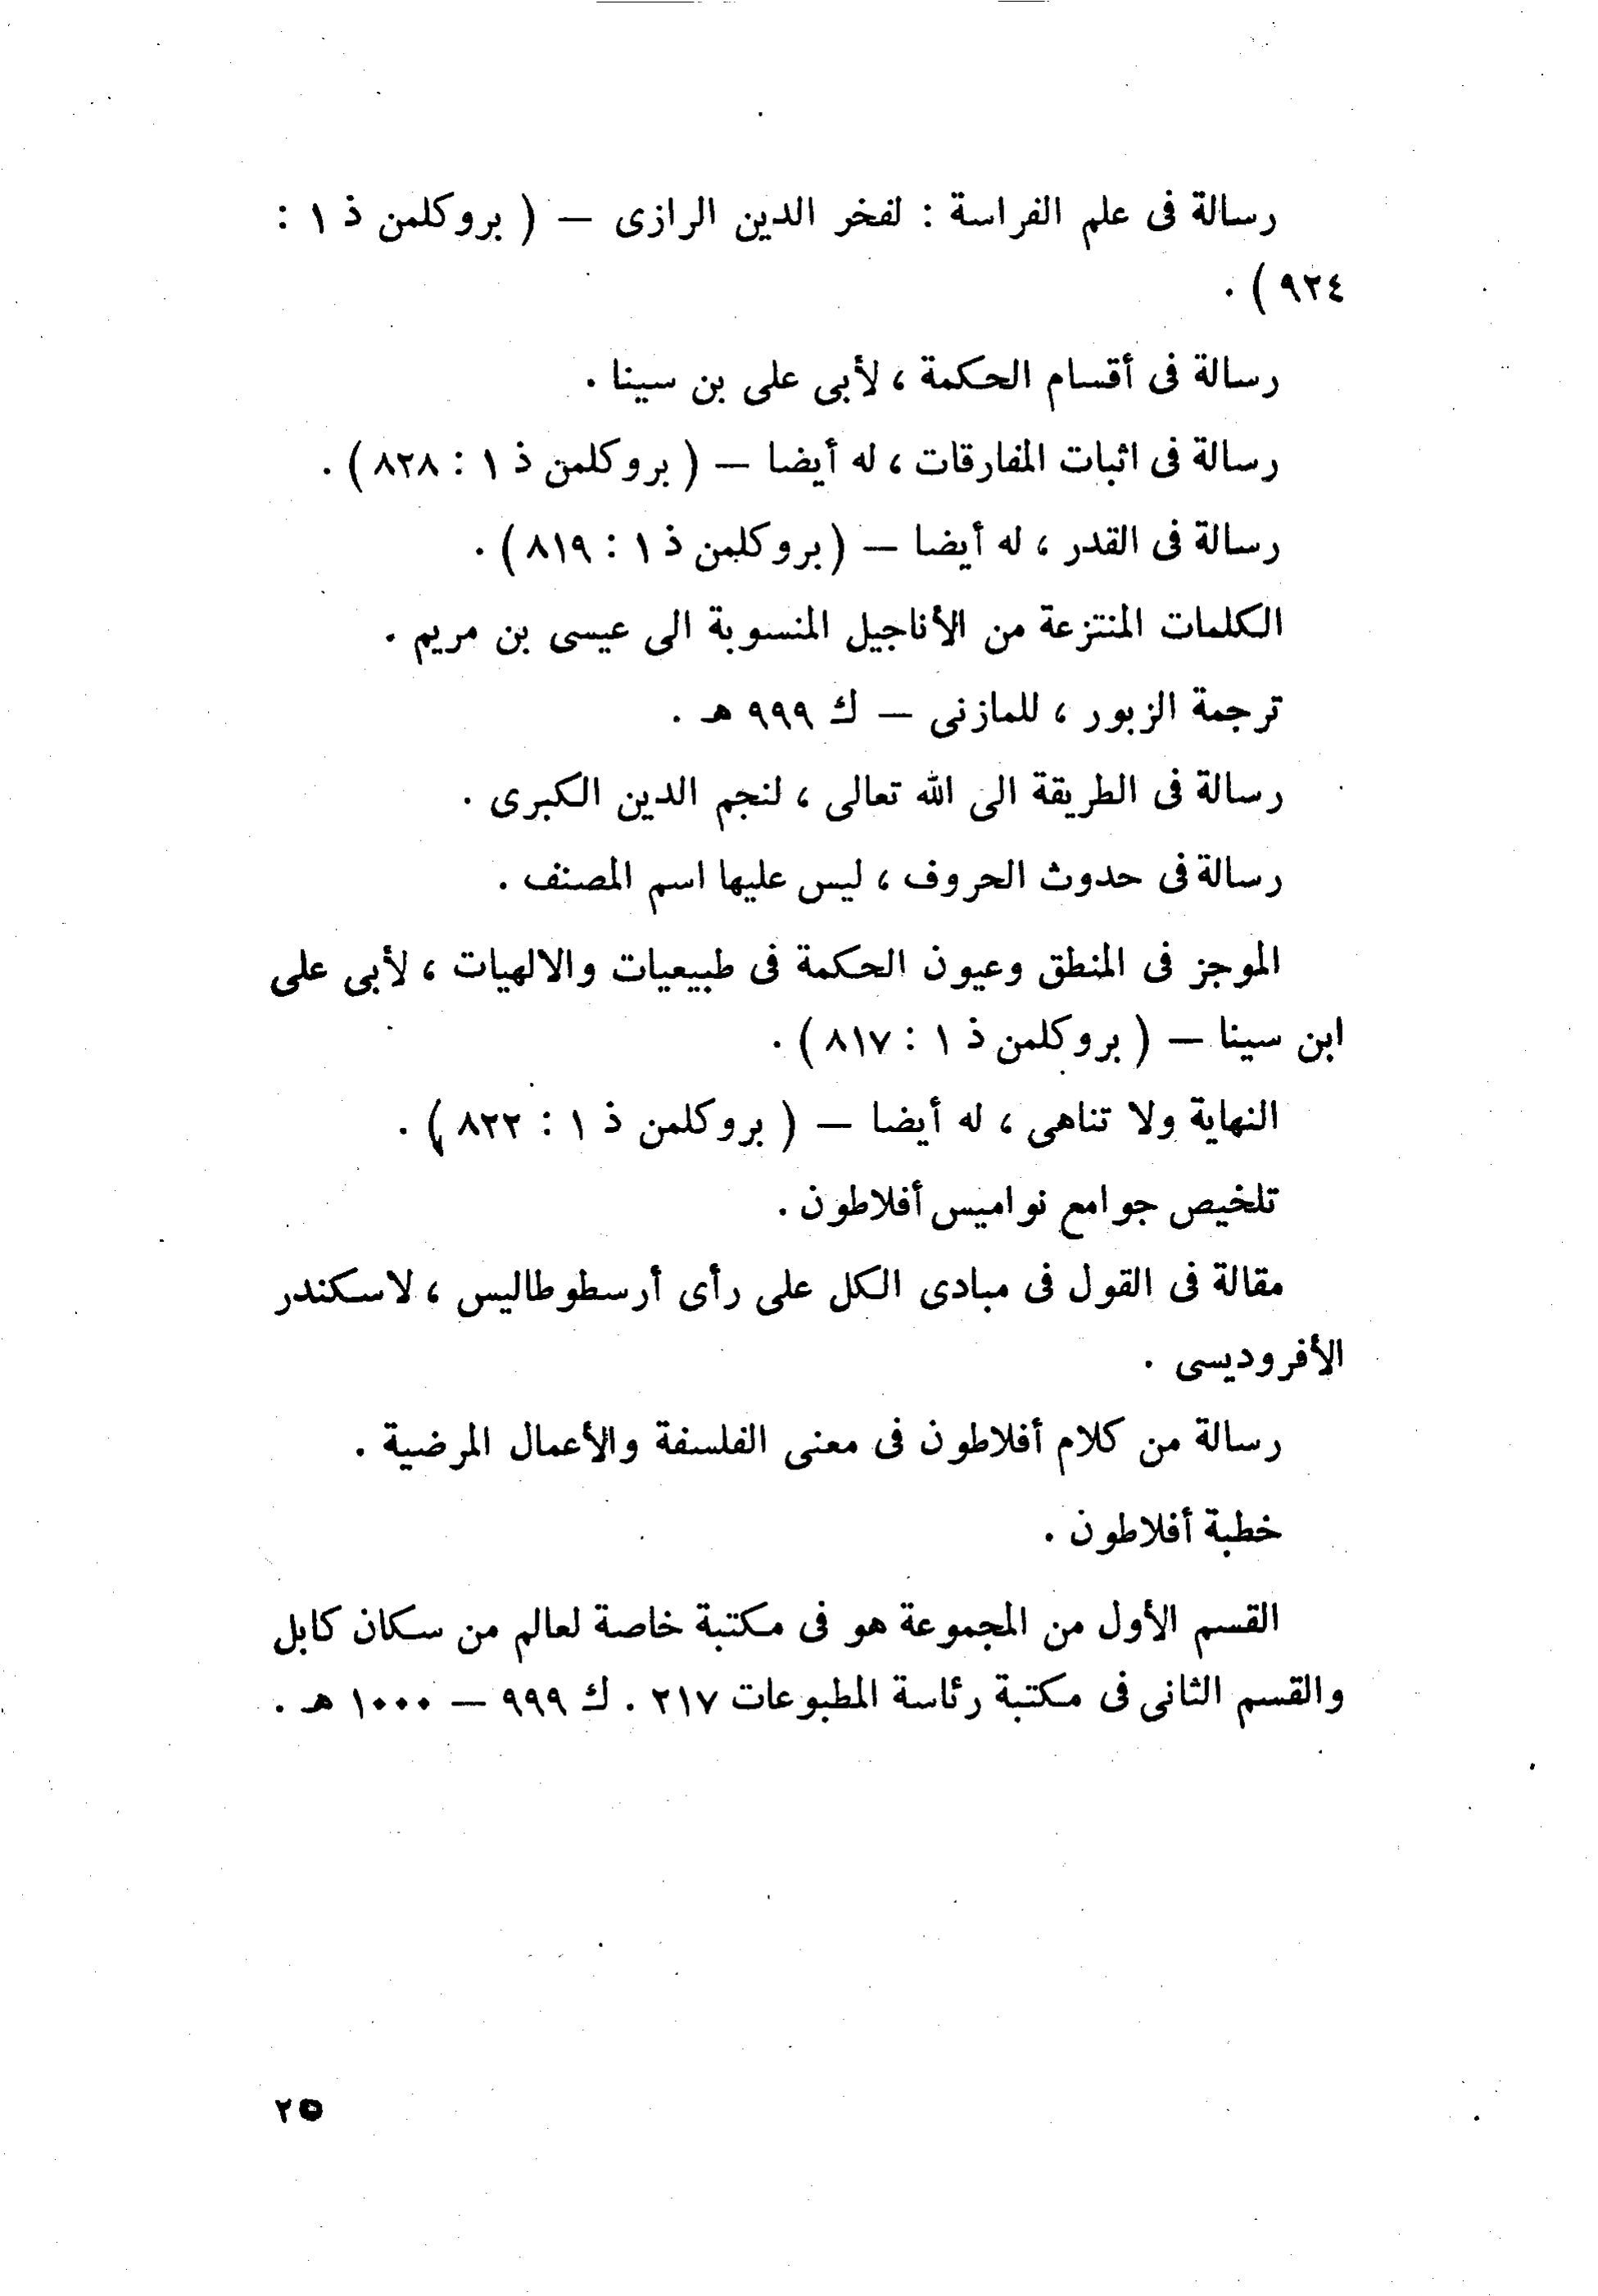 رسالة فى علم الفراسة : لفخر الدين الرازى — ( بروكلمن ذ ١ :
٩٢٤ ) .
رسالة فى أقسام الحكمة ، لأبى على بن سينا .
رسالة فى اثبات المفارقات ، له أيضا — ( بروكلمن ذ ١ : ٨٢٨ ) .
رسالة فى القدر ، له أيضا — (بروكلمن ذ ١ : ٨١٩ ) .
الكلمات المنتزعة من الأناجيل المنسوبة الى عيسى بن مريم .
ترجمة الزبور ، للمازنى — ك ٩٩٩ هـ .
رسالة فى الطريقة الى الله تعالى ، لنجم الدين الكبرى .
رسالة فى حدوث الحروف ، ليس عليها اسم المصنف .
الموجز فى المنطق وعيون الحكمة فى طبيعيات والالهيات ، لأبى على
ابن سينا — ( بروكلمن ذ ١ : ٨١٧ ) .
النهاية ولا تناهى ، له أيضا — ( بروكلمن ذ ١ : ٨٢٢ ) .
تلخيص جوامع نواميس أفلاطون .
مقالة فى القول فى مبادى الكل على رأى أرسطوطاليس ، لاسكندر
الأفروديسى .
رسالة من كلام أفلاطون فى معنى الفلسفة والأعمال المرضية .
خطبة أفلاطون .
القسم الأول من المجموعة هو فى مكتبة خاصة لعالم من سكان كابل
والقسم الثانى فى مكتبة رئاسة المطبوعات ٢١٧ . ك ٩٩٩ — ١٠٠٠ هـ .
٢٥